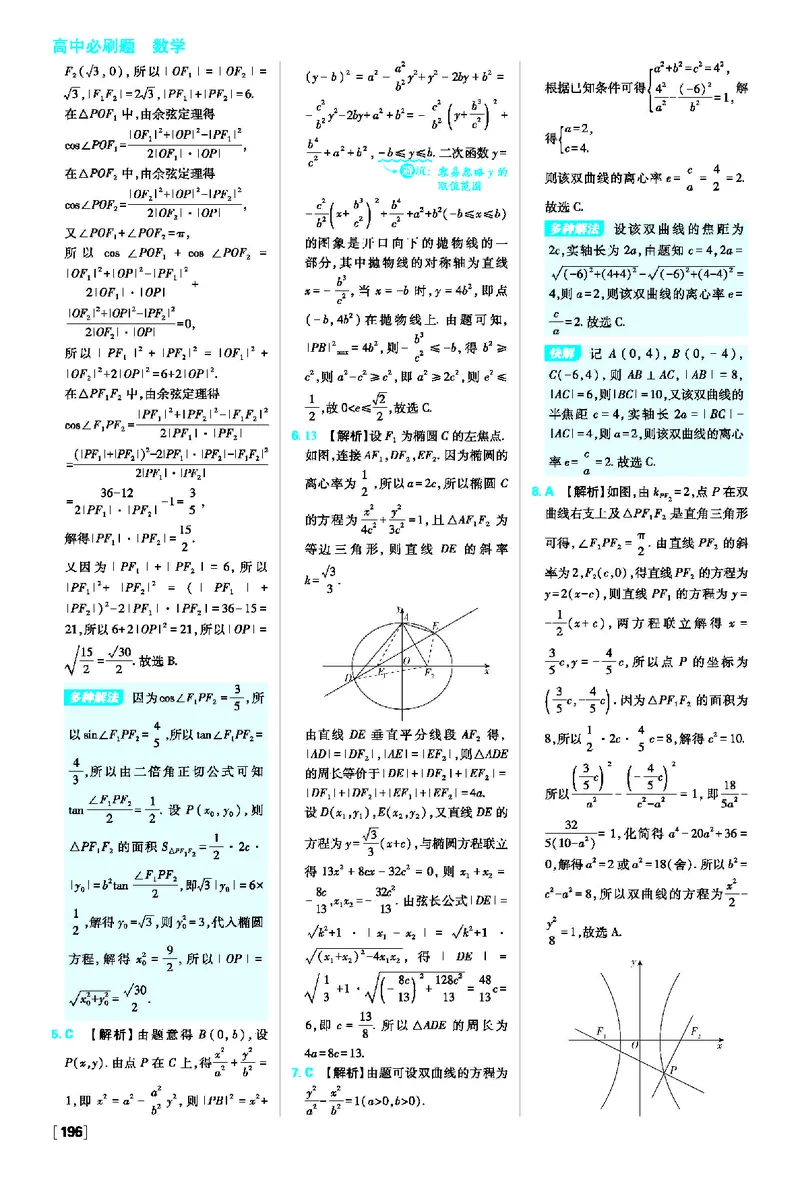 高中必刷题 数学
F₂(√3,0),所以|OF₁|=|OF₂|=
√3,|F₁F₂|=2√3,|PF₁|+|PF₂|=6.
在△POF₁中,由余弦定理得
cos∠POF₁=(|OF₁|²+|OP|²-|PF₁|²)/(2|OF₁|·|OP|),
在△POF₂中,由余弦定理得
cos∠POF₂=(|OF₂|²+|OP|²-|PF₂|²)/(2|OF₂|·|OP|),
又∠POF₁+∠POF₂=π,
所以 cos∠POF₁+cos∠POF₂=
(|OF₁|²+|OP|²-|PF₁|²)/(2|OF₁|·|OP|)+
(|OF₂|²+|OP|²-|PF₂|²)/(2|OF₂|·|OP|)=0,
所以|PF₁|²+|PF₂|²=|OF₁|²+
|OF₂|²+2|OP|²=6+2|OP|².
在△PF₁F₂中,由余弦定理得
cos∠F₁PF₂=(|PF₁|²+|PF₂|²-|F₁F₂|²)/(2|PF₁|·|PF₂|)
=((|PF₁|+|PF₂|)²-2|PF₁|·|PF₂|-|F₁F₂|²)/(2|PF₁|·|PF₂|)
=(36-12)/(2|PF₁|·|PF₂|)-1=3/5,
解得|PF₁|·|PF₂|=15/2.
又因为|PF₁|+|PF₂|=6,所以
|PF₁|²+|PF₂|²=(|PF₁|+
|PF₂|)²-2|PF₁|·|PF₂|=36-15=
21,所以6+2|OP|²=21,所以|OP|=
√(15/2)=√30/2.故选B.
多种解法 因为cos∠F₁PF₂=3/5,所
以sin∠F₁PF₂=4/5,所以tan∠F₁PF₂=
4/3,所以由二倍角正切公式可知
tan(∠F₁PF₂/2)=1/2.设P(x₀,y₀),则
△PF₁F₂的面积S△PF₁F₂=1/2·2c·
|y₀|=b²tan(∠F₁PF₂/2),即√3|y₀|=6×
1/2,解得y₀=√3,则y₀²=3,代入椭圆
方程,解得x₀²=9/2,所以|OP|=
√(x₀²+y₀²)=√30/2.
5.C 【解析】由题意得B(0,b),设
P(x,y).由点P在C上,得x²/a²+y²/b²=
1,即x²=a²-(a²/b²)y²,则|PB|²=x²+
[196]
(y-b)²=a²-(a²/b²)y²+y²-2by+b²=
-(c²/b²)y²-2by+a²+b²=-(c²/b²)(y+b³/c²)²+
b⁴/c²+a²+b²,-b≤y≤b.二次函数y=
避坑:容易忽略y的
取值范围
-(c²/b²)(x+b³/c²)²+b⁴/c²+a²+b²(-b≤x≤b)
的图象是开口向下的抛物线的一
部分,其中抛物线的对称轴为直线
x=-b³/c²,当x=-b时,y=4b²,即点
(-b,4b²)在抛物线上.由题可知,
|PB|²max=4b²,则-b³/c²≤-b,得b²≥
c²,则a²-c²≥c²,即a²≥2c²,则e²≤
1/2,故0<e≤√2/2,故选C.
6.13 【解析】设F₁为椭圆C的左焦点.
如图,连接AF₁,DF₂,EF₂.因为椭圆的
离心率为1/2,所以a=2c,所以椭圆C
的方程为x²/4c²+y²/3c²=1,且△AF₁F₂为
等边三角形,则直线DE的斜率
k=√3/3.
y
A
E
O
D
F₁
F₂
x
由直线DE垂直平分线段AF₂得,
|AD|=|DF₂|,|AE|=|EF₂|,则△ADE
的周长等价于|DE|+|DF₂|+|EF₂|=
|DF₁|+|DF₂|+|EF₁|+|EF₂|=4a.
设D(x₁,y₁),E(x₂,y₂),又直线DE的
方程为y=(√3/3)(x+c),与椭圆方程联立
得13x²+8cx-32c²=0,则x₁+x₂=
-8c/13,x₁x₂=-32c²/13.由弦长公式|DE|=
√(k²+1)·|x₁-x₂|=√(k²+1)·
√((x₁+x₂)²-4x₁x₂),得|DE|=
√(1/3+1)·√((-8c/13)²+128c²/13)=(48/13)c=
6,即c=13/8.所以△ADE的周长为
4a=8c=13.
7.C 【解析】由题可设双曲线的方程为
y²/a²-x²/b²=1(a>0,b>0).
根据已知条件可得{a²+b²=c²=4², 4²/a²-(-6)²/b²=1,解
得{a=2, c=4.
则该双曲线的离心率e=c/a=4/2=2.
故选C.
多种解法 设该双曲线的焦距为
2c,实轴长为2a,由题知c=4,2a=
√((-6)²+(4+4)²)-√((-6)²+(4-4)²)=
4,则a=2,则该双曲线的离心率e=
c/a=2.故选C.
快解 记A(0,4),B(0,-4),
C(-6,4),则AB⊥AC,|AB|=8,
|AC|=6,则|BC|=10,又该双曲线的
半焦距c=4,实轴长2a=|BC|-
|AC|=4,则a=2,则该双曲线的离心
率e=c/a=2.故选C.
8.A 【解析】如图,由k_PF₂=2,点P在双
曲线右支上及△PF₁F₂是直角三角形
可得,∠F₁PF₂=π/2.由直线PF₂的斜
率为2,F₂(c,0),得直线PF₂的方程为
y=2(x-c),则直线PF₁的方程为y=
-1/2(x+c),两方程联立解得x=
3/5c,y=-4/5c,所以点P的坐标为
(3/5c,-4/5c).因为△PF₁F₂的面积为
8,所以1/2·2c·4/5c=8,解得c²=10.
所以(3/5c)²/a²-(-4/5c)²/(c²-a²)=1,即18/5a²-
32/5(10-a²)=1,化简得a⁴-20a²+36=
0,解得a²=2或a²=18(舍).所以b²=
c²-a²=8,所以双曲线的方程为x²/2-
y²/8=1,故选A.
y
F₁
O
F₂
x
P